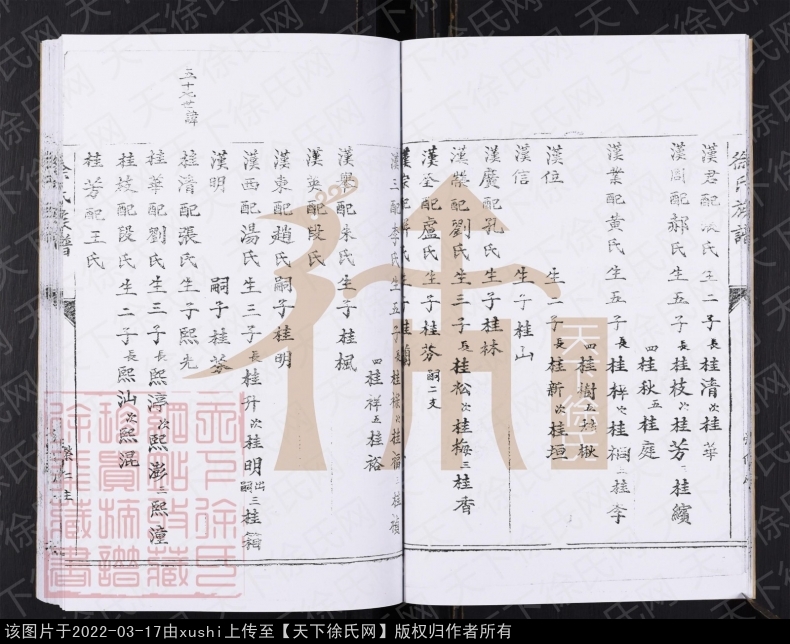 徐氏族譜
漢君配 氏生二子長桂清次桂華
漢周配郝氏生五子長桂枝次桂芳三桂繽
四桂秋五桂庭
漢業配黄氏生五子長桂梓次桂福三桂李
四桂樹五桂楸
漢位 生二子長桂新次桂垣
漢信 生子桂山
漢廣配孔氏生子桂林
漢榮配劉氏生三子長桂松次桂梅三桂香
漢奎配盧氏生子桂芬嗣二支
漢三配李氏生五子長桂 次桂福 桂禎
四桂祥五桂裕
漢 配朱氏生子桂楓
漢英配段氏
漢東配趙氏嗣子桂明
漢西配湯氏生三子長桂升次桂明出嗣三桂箱
漢明 嗣子桂芬
五十九世諱
桂清配張氏生子熙先
桂華配劉氏生三子長熙淳次熙澎三熙潼
桂枝配段氏生二子長熙汕次熙混
桂芳配王氏
徐氏族譜
天下徐氏
天下徐氏网
该图片于2022-03-17由xushi上传至【天下徐氏网】版权归作者所有